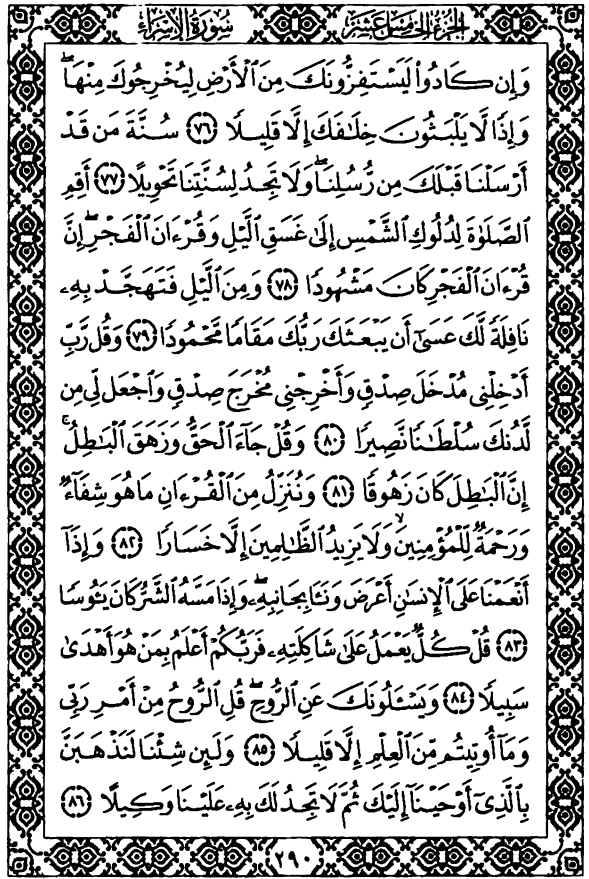 الجزء الخامس عشر سورة الإسراء
وَإِن كَادُوا۟ لَيَسْتَفِزُّونَكَ مِنَ ٱلْأَرْضِ لِيُخْرِجُوكَ مِنْهَا ۖ
وَإِذًا لَّا يَلْبَثُونَ خِلَـٰفَكَ إِلَّا قَلِيلًا ﴿٧٦﴾ سُنَّةَ مَن قَدْ
أَرْسَلْنَا قَبْلَكَ مِن رُّسُلِنَا ۖ وَلَا تَجِدُ لِسُنَّتِنَا تَحْوِيلًا ﴿٧٧﴾ أَقِمِ
ٱلصَّلَوٰةَ لِدُلُوكِ ٱلشَّمْسِ إِلَىٰ غَسَقِ ٱلَّيْلِ وَقُرْءَانَ ٱلْفَجْرِ ۖ إِنَّ
قُرْءَانَ ٱلْفَجْرِ كَانَ مَشْهُودًا ﴿٧٨﴾ وَمِنَ ٱلَّيْلِ فَتَهَجَّدْ بِهِۦ
نَافِلَةً لَّكَ عَسَىٰٓ أَن يَبْعَثَكَ رَبُّكَ مَقَامًا مَّحْمُودًا ﴿٧٩﴾ وَقُل رَّبِّ
أَدْخِلْنِى مُدْخَلَ صِدْقٍ وَأَخْرِجْنِى مُخْرَجَ صِدْقٍ وَٱجْعَل لِّى مِن
لَّدُنكَ سُلْطَـٰنًا نَّصِيرًا ﴿٨٠﴾ وَقُلْ جَآءَ ٱلْحَقُّ وَزَهَقَ ٱلْبَـٰطِلُ ۚ
إِنَّ ٱلْبَـٰطِلَ كَانَ زَهُوقًا ﴿٨١﴾ وَنُنَزِّلُ مِنَ ٱلْقُرْءَانِ مَا هُوَ شِفَآءٌ
وَرَحْمَةٌ لِّلْمُؤْمِنِينَ ۙ وَلَا يَزِيدُ ٱلظَّـٰلِمِينَ إِلَّا خَسَارًا ﴿٨٢﴾ وَإِذَآ
أَنْعَمْنَا عَلَى ٱلْإِنسَـٰنِ أَعْرَضَ وَنَـَٔا بِجَانِبِهِۦ ۖ وَإِذَا مَسَّهُ ٱلشَّرُّ كَانَ يَـُٔوسًا
﴿٨٣﴾ قُلْ كُلٌّ يَعْمَلُ عَلَىٰ شَاكِلَتِهِۦ فَرَبُّكُمْ أَعْلَمُ بِمَنْ هُوَ أَهْدَىٰ
سَبِيلًا ﴿٨٤﴾ وَيَسْـَٔلُونَكَ عَنِ ٱلرُّوحِ ۖ قُلِ ٱلرُّوحُ مِنْ أَمْرِ رَبِّى
وَمَآ أُوتِيتُم مِّنَ ٱلْعِلْمِ إِلَّا قَلِيلًا ﴿٨٥﴾ وَلَئِن شِئْنَا لَنَذْهَبَنَّ
بِٱلَّذِىٓ أَوْحَيْنَآ إِلَيْكَ ثُمَّ لَا تَجِدُ لَكَ بِهِۦ عَلَيْنَا وَكِيلًا ﴿٨٦﴾
٢٩٠